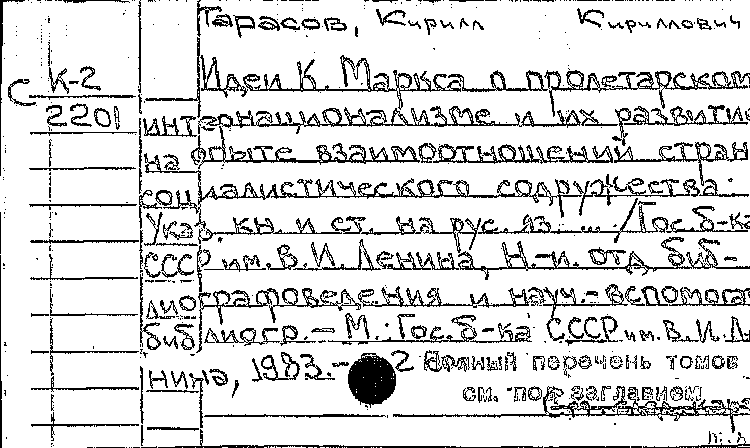 Тарасов, Кирилл Кириллович
С К-2
2201
Идеи К. Маркса о пролетарском
интернационализме и их развитие
на опыте взаимоотношений стран
социалистического содружества:
Указ. кн. и ст. на рус. яз. ... / Гос. б-ка
СССР им. В. И. Ленина, Н.-и. отд. биб-
лиографоведения и науч.-вспомогат.
библиогр. – М.: Гос. б-ка СССР им. В. И. Ле-
нина, 1983. – 2
Полный перечень томов
см. под заглавием